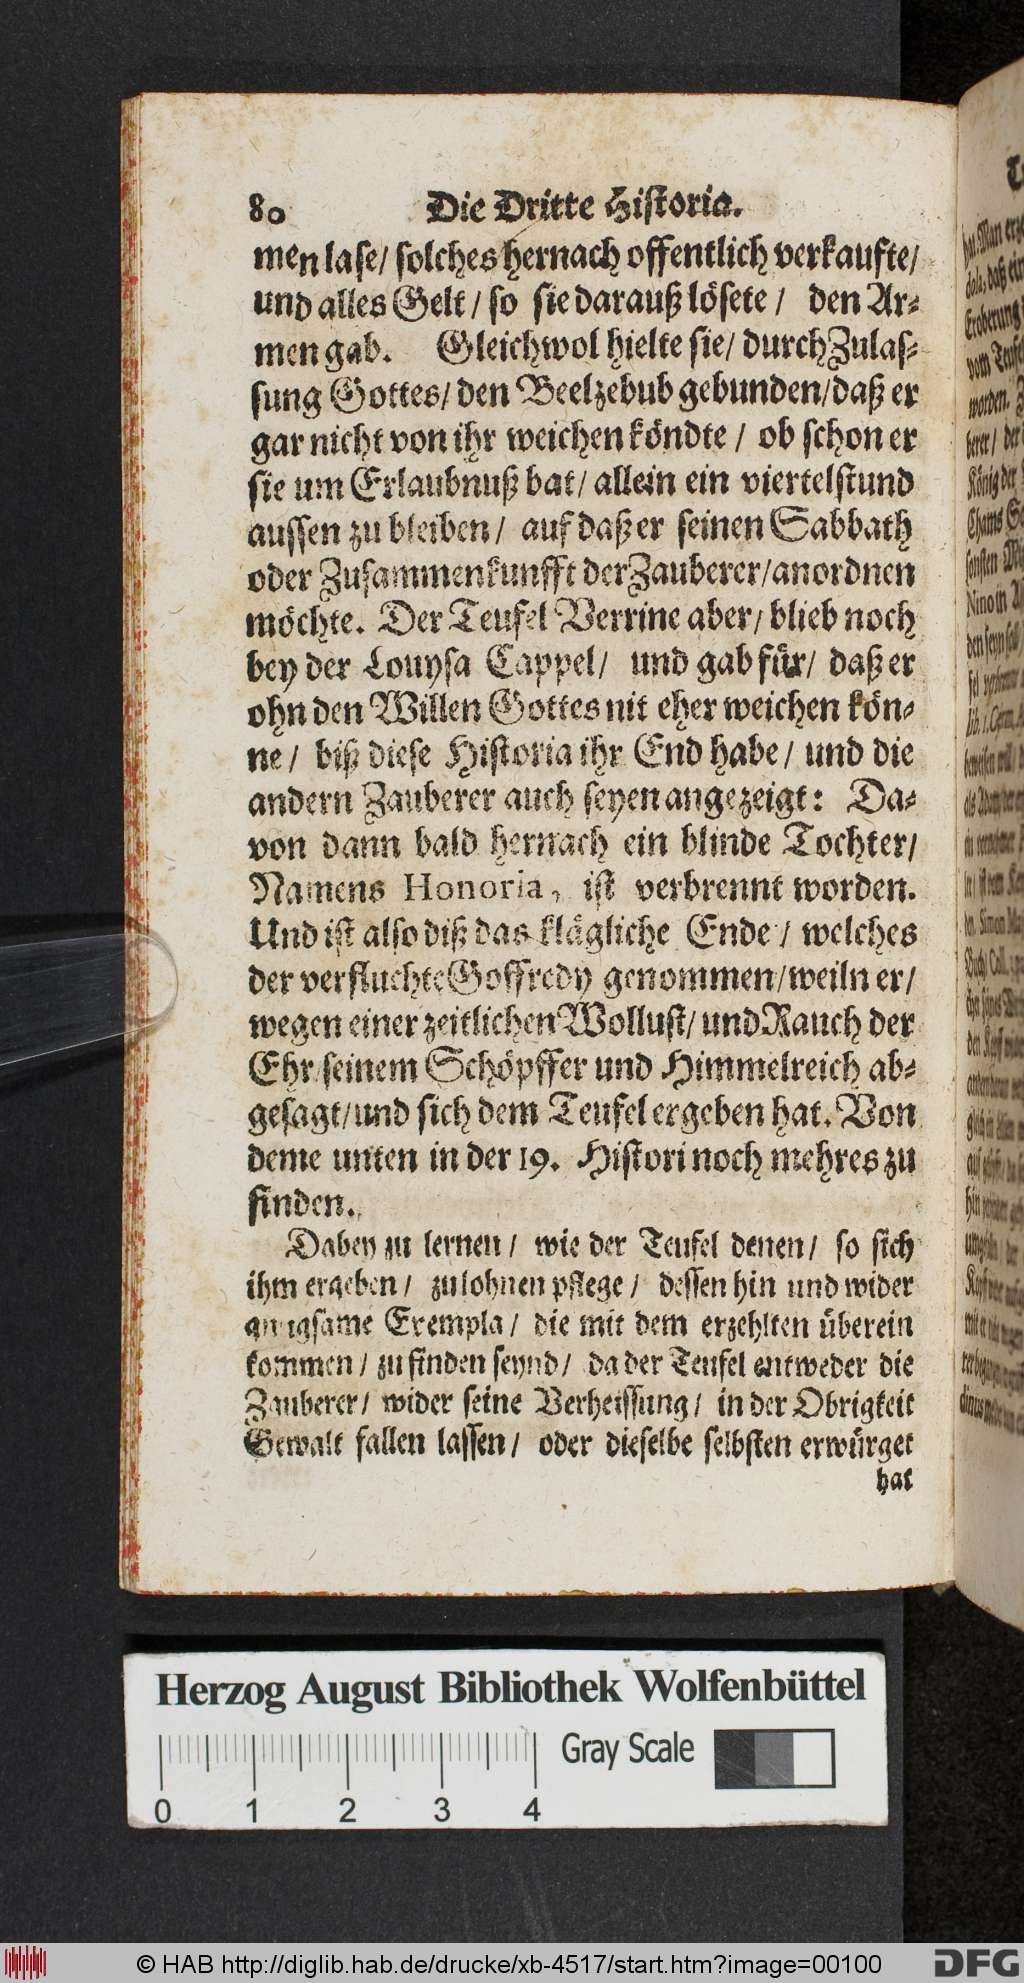 80 Die Dritte Historia.
men lase/ solches hernach offentlich verkaufte/
und alles Gelt / so sie darauß lösete / den Ar⸗
men gab. Gleichwol hielte sie/ durch Zulas⸗
sung Gottes/ den Beelzebub gebunden/daß er
gar nicht von ihr weichen köndte / ob schon er
sie um Erlaubnuß bat/ allein ein viertelstund
aussen zu bleiben / auf daß er seinen Sabbath
oder Zusammenkunfft der Zauberer/anordnen
möchte. Der Teufel Verrine aber/ blieb noch
bey der Louysa Cappel/ und gab für/ daß er
ohn den Willen Gottes nit eher weichen kön⸗
ne / biß diese Historia ihr End habe / und die
andern Zauberer auch seyen angezeigt: Da⸗
von dann bald hernach ein blinde Tochter/
Namens Honoria, ist verbrennt worden.
Und ist also diß das klägliche Ende / welches
der verfluchte Goffredy genommen/weiln er/
wegen einer zeitlichen Wollust/ und Rauch der
Ehr/seinem Schöpffer und Himmelreich ab⸗
gesagt/und sich dem Teufel ergeben hat. Von
deme unten in der 19. Histori noch mehres zu
finden.
Dabey zu lernen / wie der Teufel denen / so sich
ihm ergeben / zu lohnen pflege / dessen hin und wider
gnugsame Exempla / die mit dem erzehlten überein
kommen / zu finden seynd / da der Teufel entweder die
Zauberer/ wider seine Verheissung / in der Obrigkeit
Gewalt fallen lassen / oder dieselbe selbsten erwürget
hat
Herzog August Bibliothek Wolfenbüttel
Gray Scale
0 1 2 3 4
© HAB http://diglib.hab.de/drucke/xb-4517/start.htm?image=00100
DFG